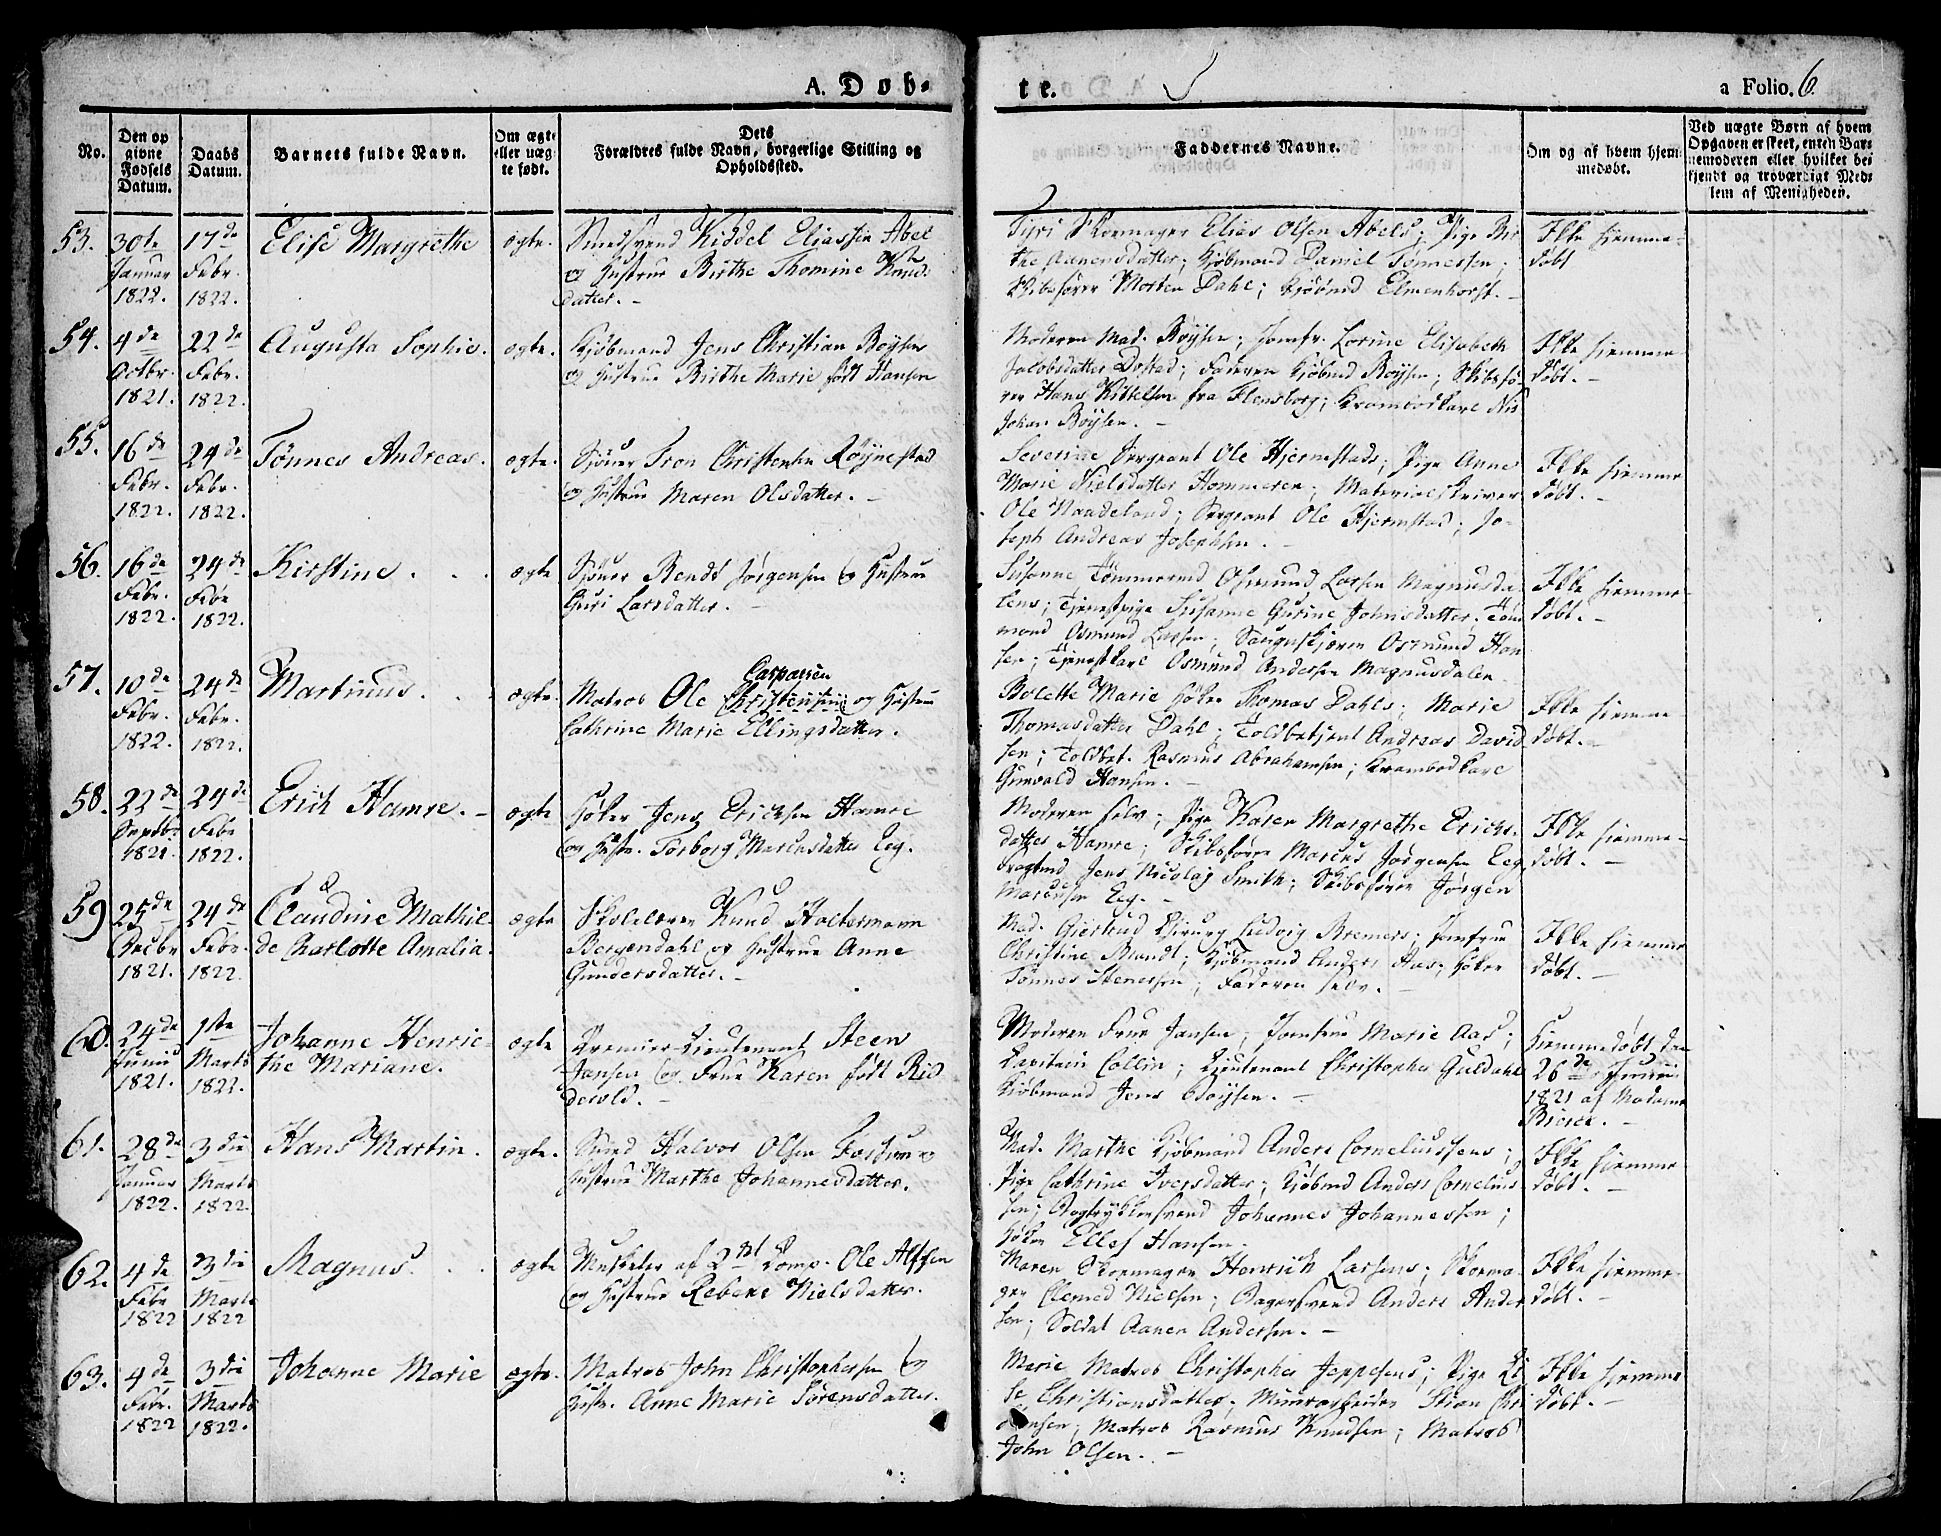 A. Døb-
te.
a Folio. 6.
No.
Den op
givne
Fødsels
Datum.
Daabs
Datum.
Barnets fulde Navn.
Om ægte
eller uæg-
te født.
Dets
Forældres fulde Navn, borgerlige Stilling og
Opholdssted.
Faddernes Navne.
Om og af hvem hjem-
medøbt.
Ved uægte Børn af hvem
Opgaven er skeet, enten Bar-
nemoderen eller hvilket be-
kjendt og troværdigt Med-
lem af Menigheden.
53.
30te
Januar
1822.
17de
Febr.
1822.
Elise Margrethe
ægte.
Smedsvend Kiddel Eliassen Abel
og Hustrue Birthe Thomine Knud-
datter. -
Siri Skomager Elias Olsen Abels; Pige Bir-
the Aanensdatter; Kjøbmand Daniel Tønnessen;
Skibsfører Morten Dahl; Kjøbmd Elmenhorst. -
Ikke hiemme-
døbt
54.
4de
Octbr.
1821.
22de
Febr.
1822.
Augusta Sophie.
ægte.
Kjøbmand Jens Christian Boysen
og Hustrue Birthe Marie født Hansen
Moderen Mad. Boysen; Jomfr. Lorine Elisabeth
Jacobsdatter Dostad; Faderen Kjøbmd Boysen; Skibsfø-
rer Hans Kittelsen fra Flensborg; Krambodkarl Nis
Johan Boysen. -
Ikke hiemme
døbt. -
55.
16de
Febr.
1822.
24de
Febr.
1822.
Tønnes Andreas.
ægte.
Sjouer Tron Christensen Røynestad
og Hustrue Maren Olsdatter. -
Severine Sergeant Ole Hjermstads; Pige Anne
Marie Nielsdatter Hommeren; Materialskriver
Ole Naadeland; Sergeant Ole Hjermstad; Jo-
seph Andreas Josephsen. -
Ikke hiemme
døbt. -
56.
16de
Febr.
1822.
24de
Febr
1822.
Kirstine . . .
ægte
Sjouer Bendt Jørgensen og Hustrue
Guri Larsdatter. -
Susanne Tømmermd Osmund Larsen Magnusda-
lens; Tjenestpige Susanne Gurine Johnsdatter; Tøm
mand Osmund Larsen; Osmund Han
sen; Tjenestkarl Osmund Andersen Magnusdalen
Ikke hiemme-
døbt. -
57.
10de
Febr.
1822.
24de
Febr.
1822.
Martinus. . .
ægte.
Caspassen
Matros Ole Christensen og Hustrue
Cathrine Marie Ellingsdatter.
Bolette Marie Høker Thomas Dahls; Marie
Thomasdatter Dahl; Toldbetjent Andreas David
sen; Toldbet. Rasmus Abrahamsen; Krambodkarl
Gunvald Hansen. -
Ikke hiemme-
døbt. -
58.
22de
Septbr
1821.
24de
Febr
1822.
Erich Hamre. -
ægte
Høker Jens Erichsen Hamre
og Hustr. Torborg Marcusdatter Eeg.
Moderen selv; Pige Karen Margrethe Erichs-
datter Hamre; Skibsfører Marcus Jørgensen Eeg
Jens Nicolaj Smith; Skibsfører Jørgen
Marcussen Eeg. -
Ikke hiemme-
døbt. -
59
25de
Decbr
1821.
24de
Febr.
1822.
Claudine Mathil-
de Charlotte Amalia.
ægte
Skolelærer Knud Holtermann
Bergendahl og Hustrue Anne
Gundersdatter. -
Mad. Giertrud Chirurg Ludvig Bremers; Jomfrue
Christine Brandt; Kjøbmand Anders Aas; Høker
Tønnes Stenersen; Faderen selv. -
Ikke hiemme
døbt. -
60.
24de
Junii
1821.
1ste
Marts
1822.
Johanne Henrie-
the Mariane.
ægte
Premier-Lieutenant Steen
Jansen og Frue Karen født Rid
dervold. -
Moderen Frue Jansen; Jomfrue Marie Aas;
Capitain Collin; Lieutenant Christopher Guldahl
Kjøbmand Jens Boysen. -
Hiemmedøbt den
26de Junii
1821 af Madame
. -
61.
28de
Januar
1822.
3die
Marts
1822.
Hans Martin.
ægte.
Smed Halvor Olsen Fosdum og
Hustrue Marthe Johannesdatter.
Mad. Marthe Kjøbmand Anders Corneliussens;
Pige Cathrine Iversdatter; Kjøbmd Anders Cornelius
sen; Bogtrykkersvend Johannes Johannessen;
Høker Ellef Hansen.
Ikke hiemme-
døbt. -
62.
4de
Febr
1822
3die
Marts
1822
Magnus. . .
ægte
Musketer af 2det Comp. Ole Alfsen
og Hustrue Rebeke Nielsdatter.
Maren Skomager Henrich Larsens; Skoma-
ger Clemed Nielsen; Bagersvend Anders Ander
sen; Soldat Aanen Andersen. -
Ikke hiemme-
døbt. -
63.
4de
Febr.
1822
3die
Marts
1822.
Johanne Marie
ægte.
Matros John Christophersen og
Hustr. Anne Marie Sørensdatter.
Marie Matros Christopher Jeppesens; Pige Li
se Christiansdatter; Stian Chri
stensen; Matros Rasmus Knudsen; Matros
John Olsen. -
Ikke hiemme
døbt. -